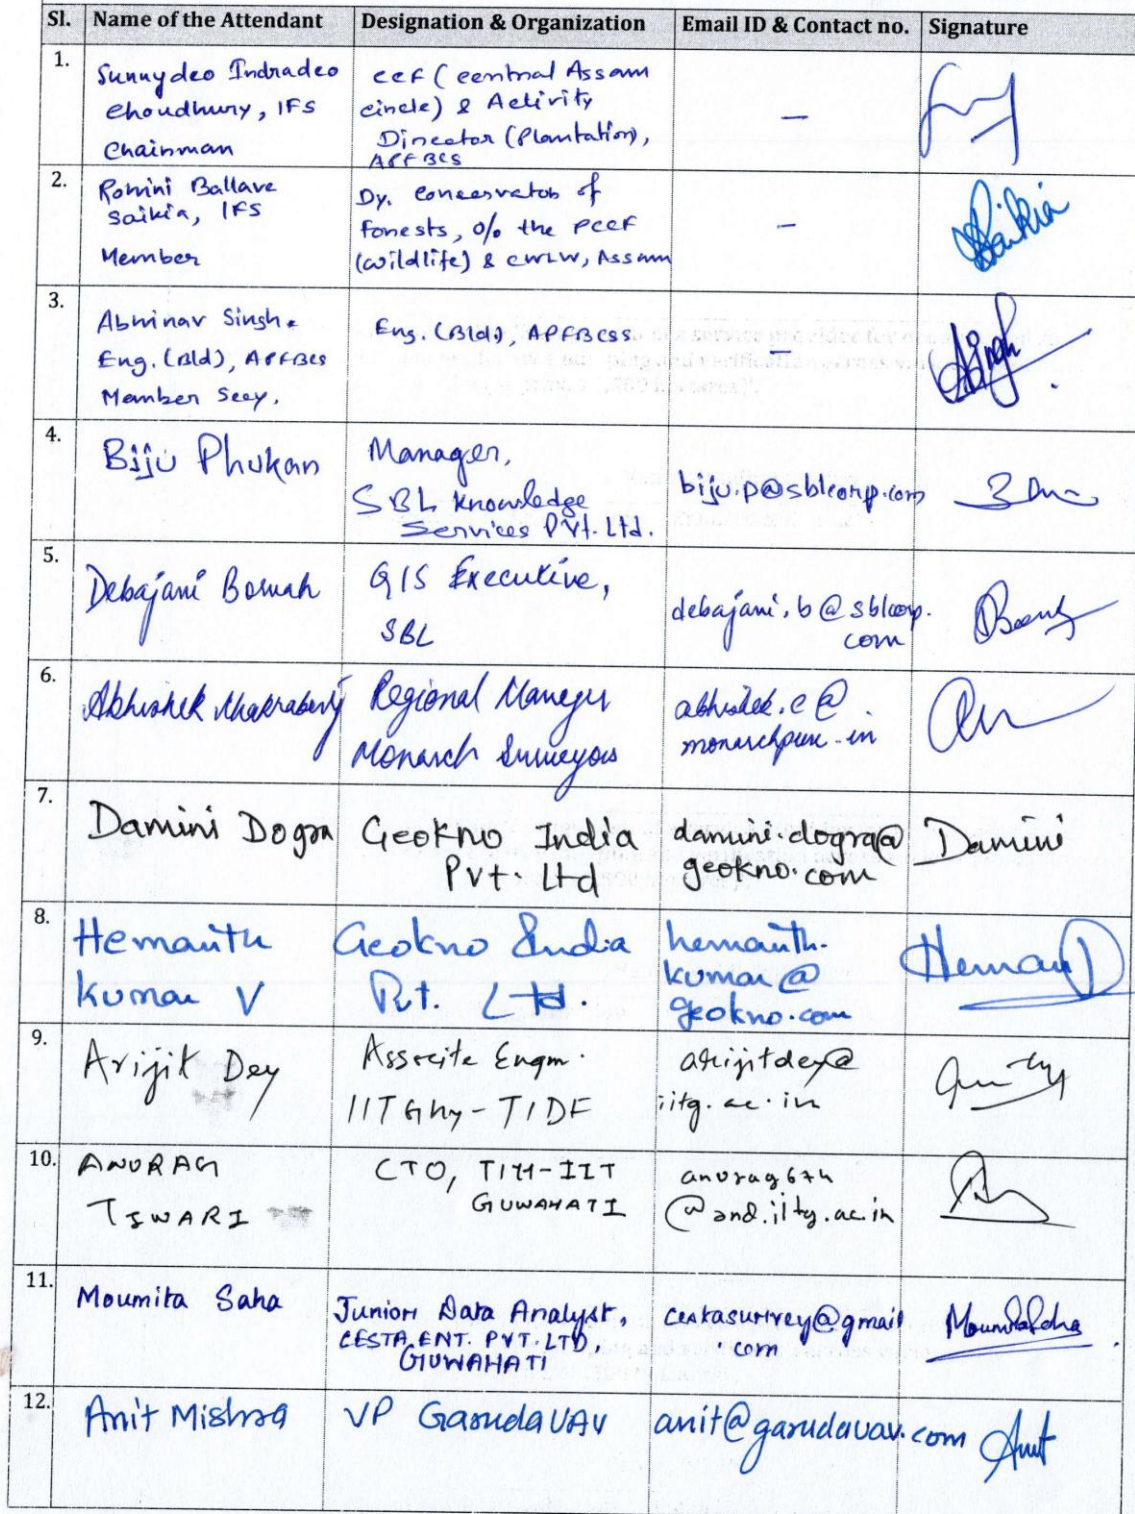 Sl. Name of the Attendant Designation & Organization Email ID & Contact no. Signature
1.
Sunnydeo Indradeo
Choudhury, IFS
Chairman
CCF (Central Assam
Circle) & Activity
Director (Plantation),
APFBCS
—
2.
Rohini Ballave
Saikia, IFS
Member
Dy. Conservator of
Forests, O/o the PCCF
(Wildlife) & CWLW, Assam
—
Saikia
3.
Abhinav Singh.
Eng. (Bld), APFBCS
Member Secy.
Eng. (Bld), APFBCSS
—
ASingh
4.
Biju Phukan
Manager,
SBL Knowledge
Services Pvt. Ltd.
biju.p@sblcorp.com
5.
Debajani Boruah
GIS Executive,
SBL
debajani.b@sblcorp.
com
6.
Abhishek Chakraberty
Regional Manager
Monarch Surveyors
abhishek.c@
monarchpune.in
7.
Damini Dogra
Geokno India
Pvt. Ltd
damini.dogra@
geokno.com
Damini
8.
Hemanth
Kumar V
Geokno India
Pvt. Ltd.
hemanth.
kumar@
geokno.com
Heman
9.
Arijit Dey
Associte Engm.
IITGhy-TIDF
arijitdey@
iitg.ac.in
10.
ANURAG
TIWARI
CTO, TIH-IIT
GUWAHATI
anurag6th
@and.iitg.ac.in
11.
Moumita Saha
Junior Data Analyst,
CESTA ENT. PVT. LTD,
GUWAHATI
cestasurvey@gmail
com
Moumita Saha
12.
Anit Mishra
VP GarudaUAV
anit@garudauav.com
Anit